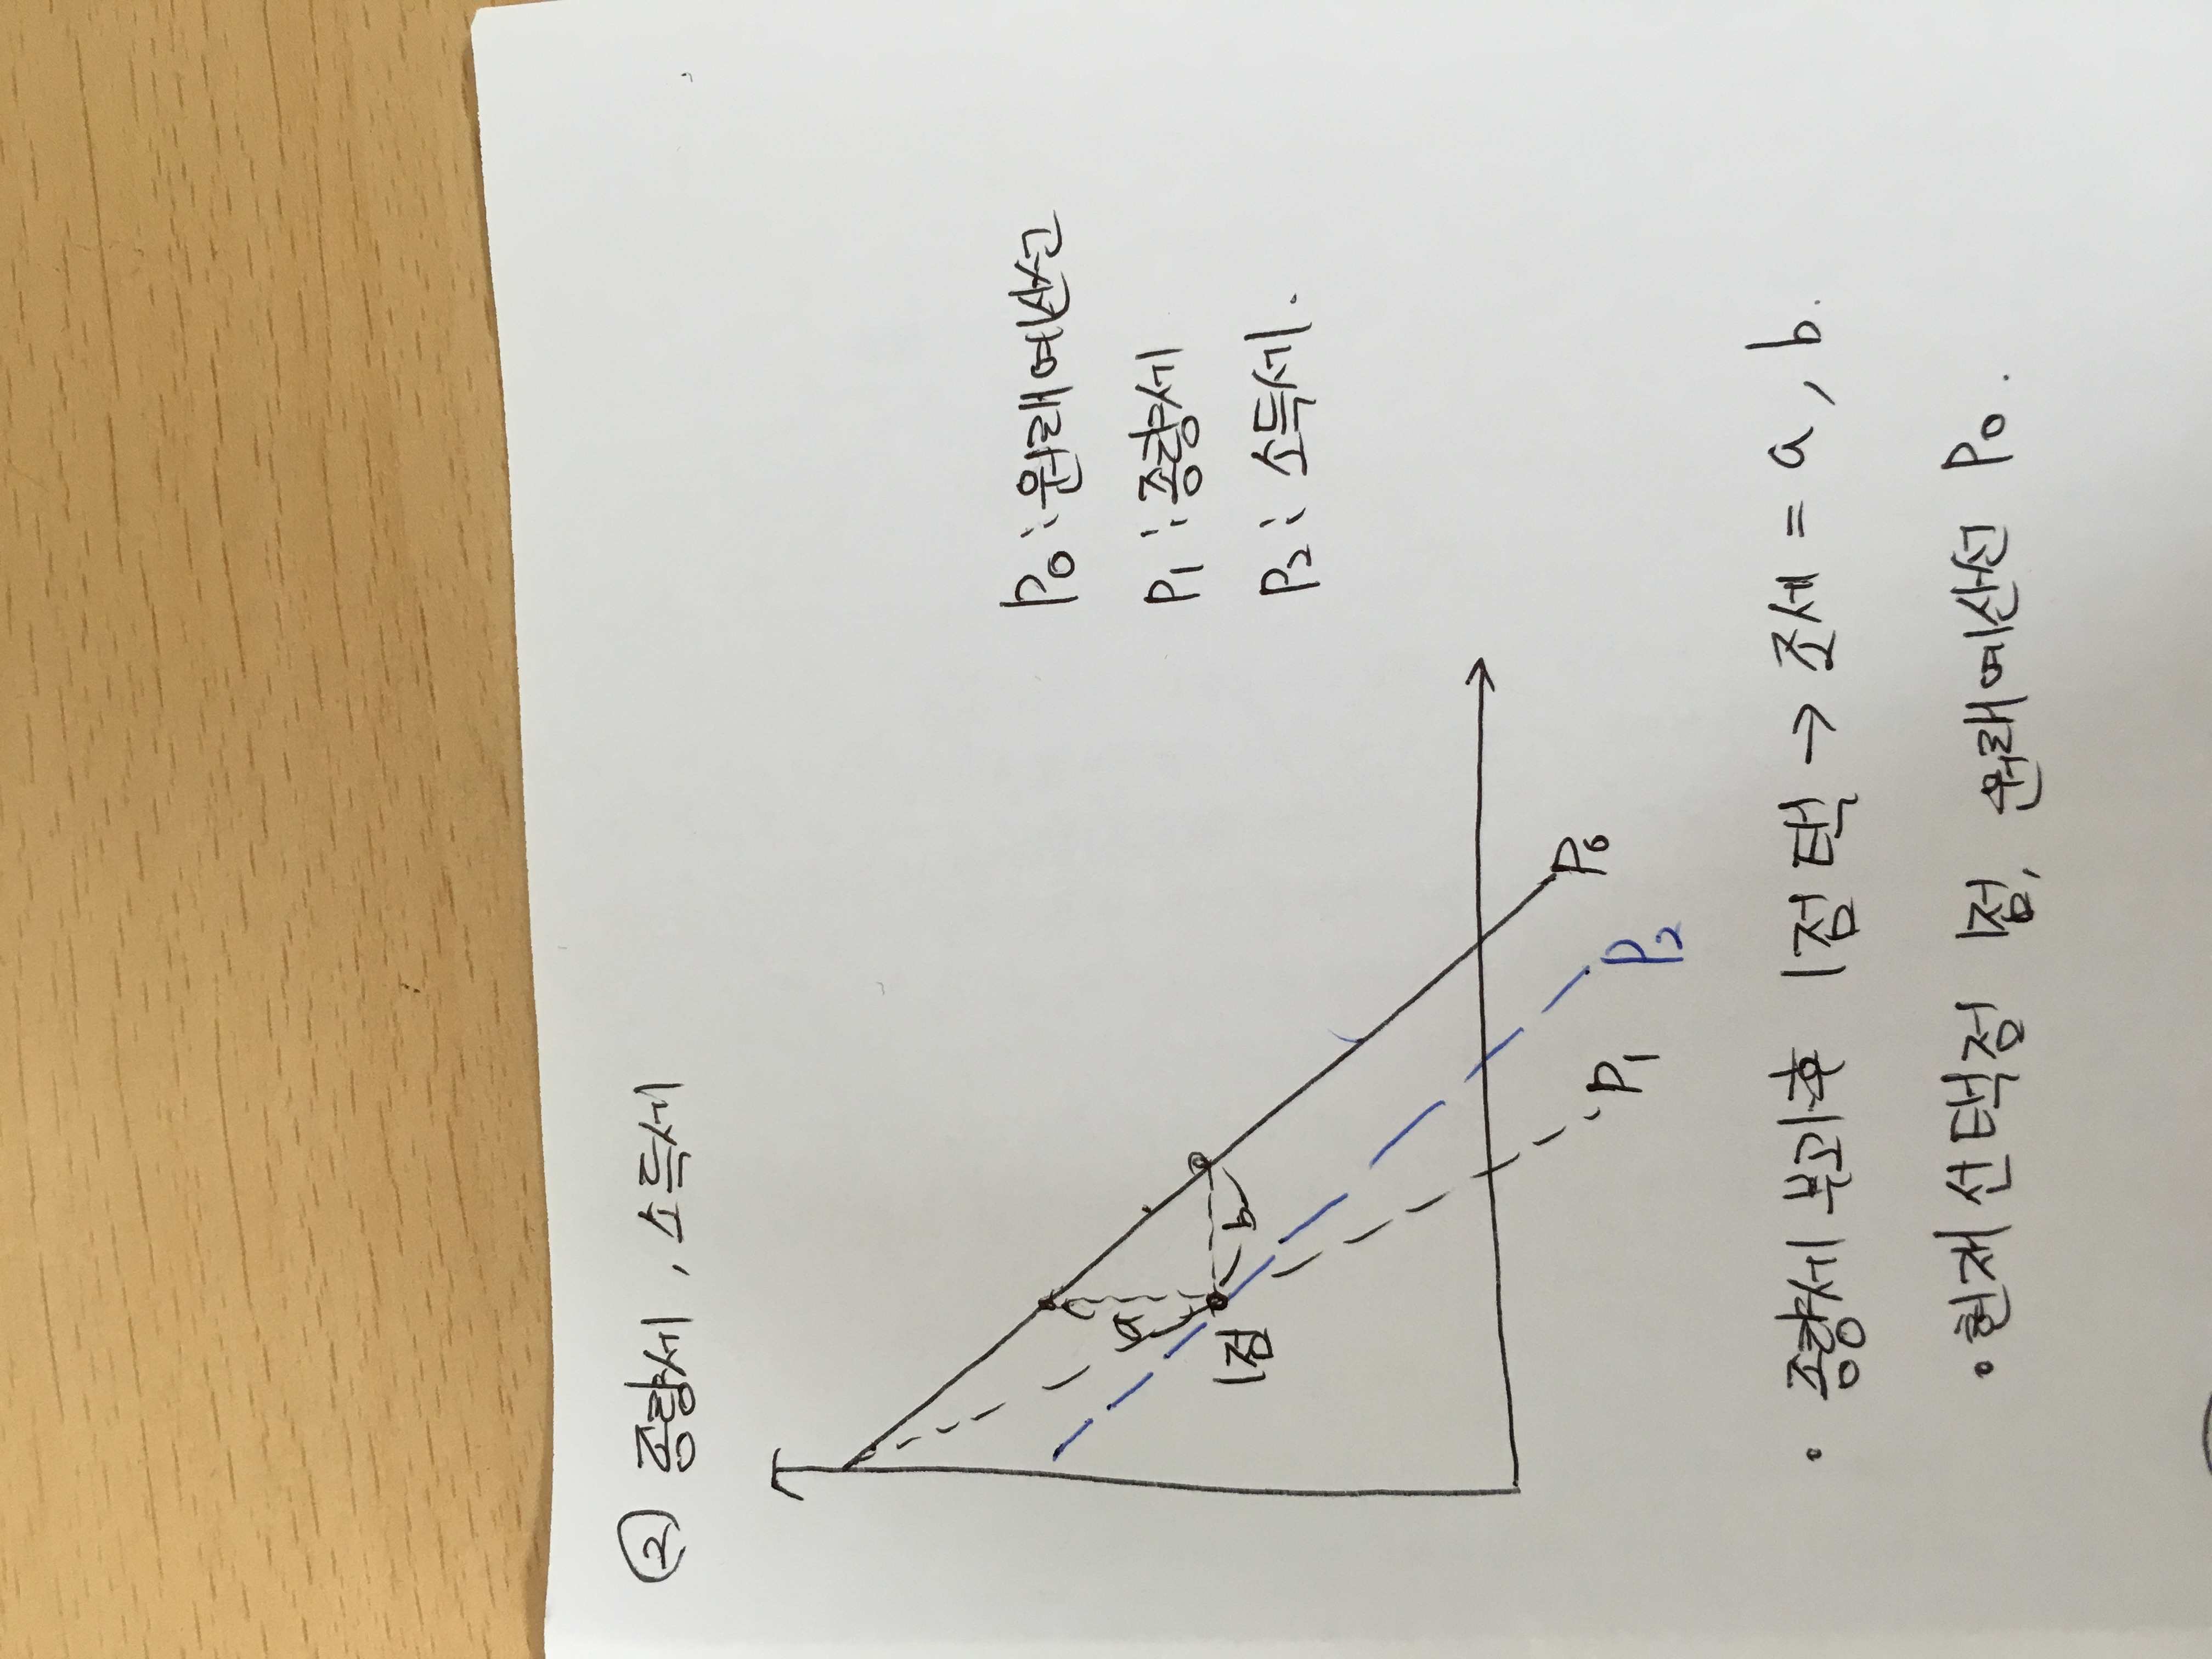 ② 종량세, 소득세
P₀ : 원래예산고
P₁ : 종량세
P₂ : 소득세.
a
b
1점
P₀
P₂
P₁
• 종량세 부과후 1점 택 → 조세 = a, b.
• 현재 선택점 1점, 원래예산선 P₀.